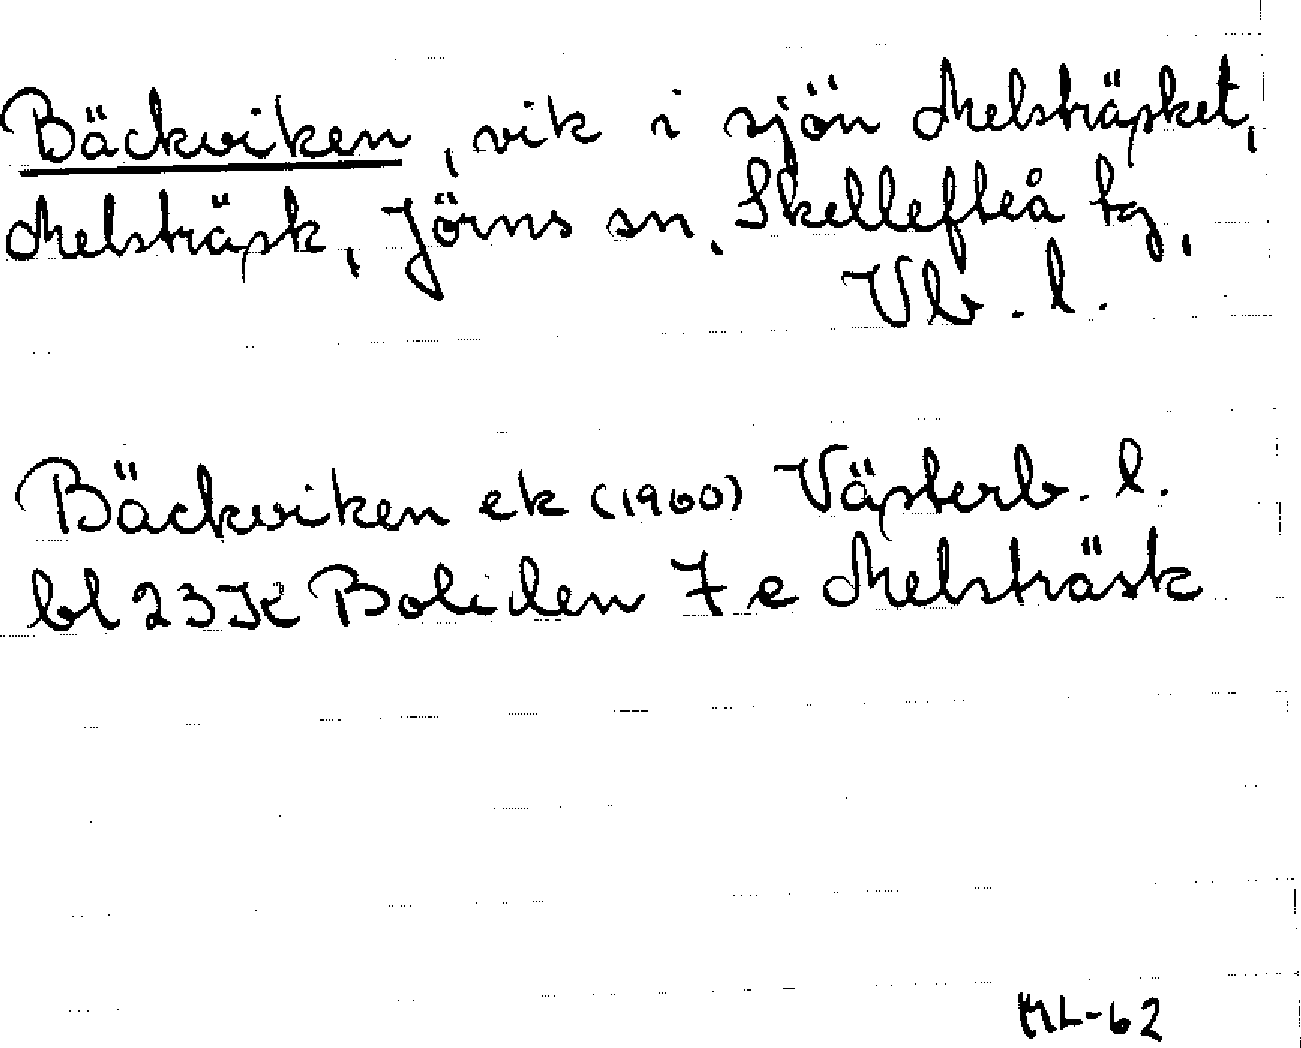 Bäckviken, vik i sjön Melsträsket,
Melsträsk, Jörns sn, Skellefteå tg,
Vb. l.
Bäckviken ek (1960) Västerb. l.
bl 23 K Boliden 7 e Melsträsk
ML-62